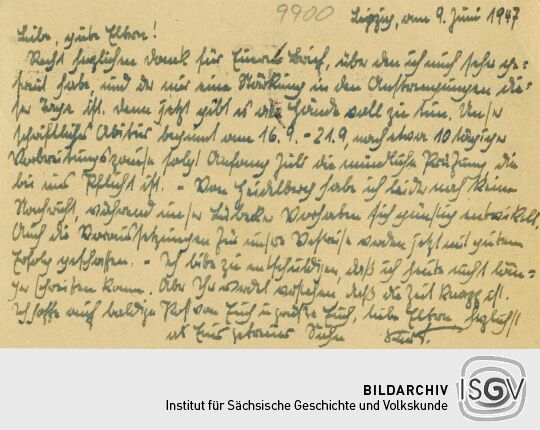 9900
Leipzig, am 9. Juni 1947
Liebe, gute Eltern!
Recht herzlichen Dank für Euren Brief, über den ich mich sehr ge-
freut habe, und der mir eine Stärkung in den Anstrengungen die-
ser Tage ist. Denn jetzt gibt es alle Hände voll zu tun. Unser
schriftliches Abitur beginnt am 16.9. - 21.9, nach etwa 10 tägiger
Vorbereitungspause folgt Anfang Juli die mündliche Prüfung, die
bei uns Pflicht ist. - Von Heidelberg habe ich leider noch keine
Nachricht, während unser Lübecker Vorhaben sich günstig entwickelt.
Auch die Voraussetzungen für unsre Reise werden jetzt mit gutem
Erfolg geschaffen. - Ich bitte zu entschuldigen, daß ich heute nicht län-
ger schreiben kann. Aber Ihr werdet verstehen, daß die Zeit knapp ist.
Ich hoffe auf baldige Post von Euch u. grüße Euch, liebe Eltern, herzlichst
als Euer getreuer Sohn
BILDARCHIV
Institut für Sächsische Geschichte und Volkskunde
ISGV